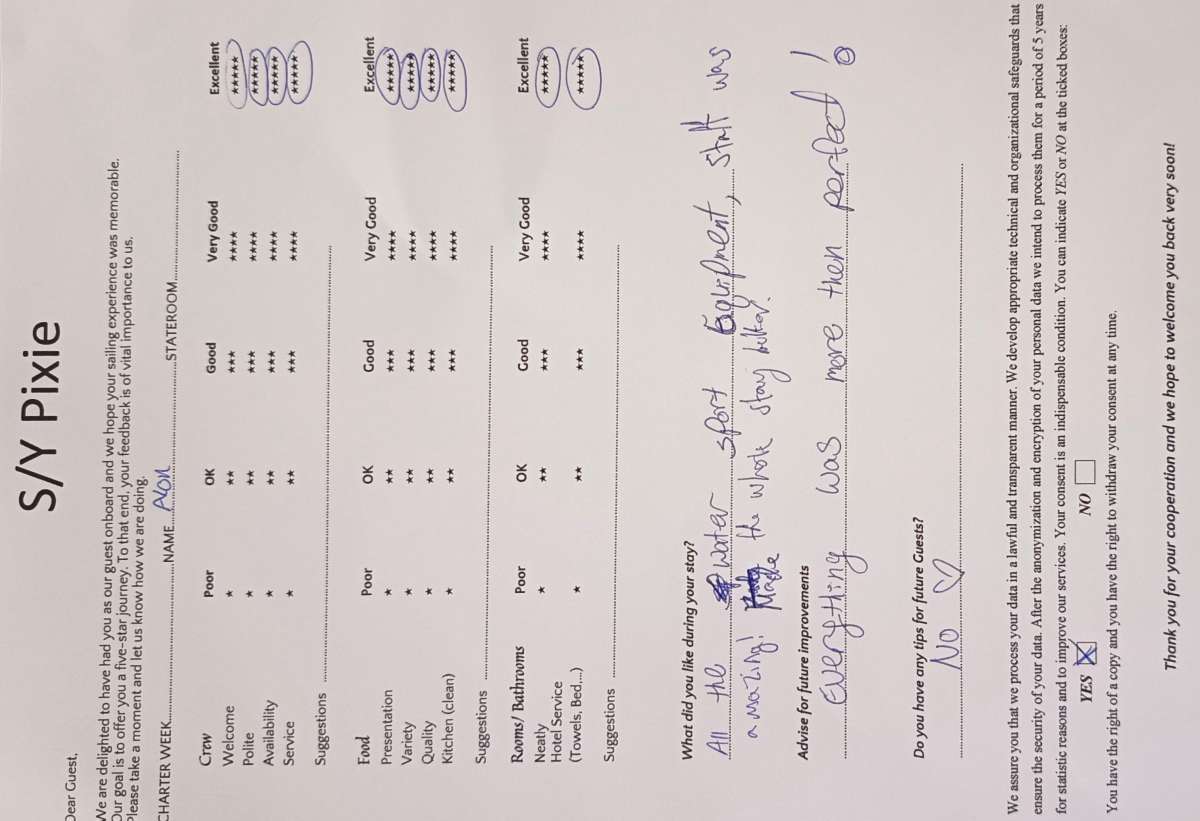 S/Y Pixie
Dear Guest,
We are delighted to have had you as our guest onboard and we hope your sailing experience was memorable.
Our goal is to offer you a five-star journey. To that end, your feedback is of vital importance to us.
Please take a moment and let us know how we are doing.
CHARTER WEEK..............................NAME Alon ..............................STATEROOM..............................
Crew Poor OK Good Very Good Excellent
Welcome ★ ★★ ★★★ ★★★★ ★★★★★
Polite ★ ★★ ★★★ ★★★★ ★★★★★
Availability ★ ★★ ★★★ ★★★★ ★★★★★
Service ★ ★★ ★★★ ★★★★ ★★★★★
Suggestions ..............................
Food Poor OK Good Very Good Excellent
Presentation ★ ★★ ★★★ ★★★★ ★★★★★
Variety ★ ★★ ★★★ ★★★★ ★★★★★
Quality ★ ★★ ★★★ ★★★★ ★★★★★
Kitchen (clean) ★ ★★ ★★★ ★★★★ ★★★★★
Suggestions ..............................
Rooms/ Bathrooms Poor OK Good Very Good Excellent
Neatly ★ ★★ ★★★ ★★★★ ★★★★★
Hotel Service
(Towels, Bed...) ★ ★★ ★★★ ★★★★ ★★★★★
Suggestions ..............................
What did you like during your stay?
All the water sport Equipment, staff was
amazing! Made the whole stay better.
Advise for future improvements
Everything was more then perfect!
Do you have any tips for future Guests?
NO ♡
We assure you that we process your data in a lawful and transparent manner. We develop appropriate technical and organizational safeguards that
ensure the security of your data. After the anonymization and encryption of your personal data we intend to process them for a period of 5 years
for statistic reasons and to improve our services. Your consent is an indispensable condition. You can indicate YES or NO at the ticked boxes:
YES ☒ NO ☐
You have the right of a copy and you have the right to withdraw your consent at any time.
Thank you for your cooperation and we hope to welcome you back very soon!